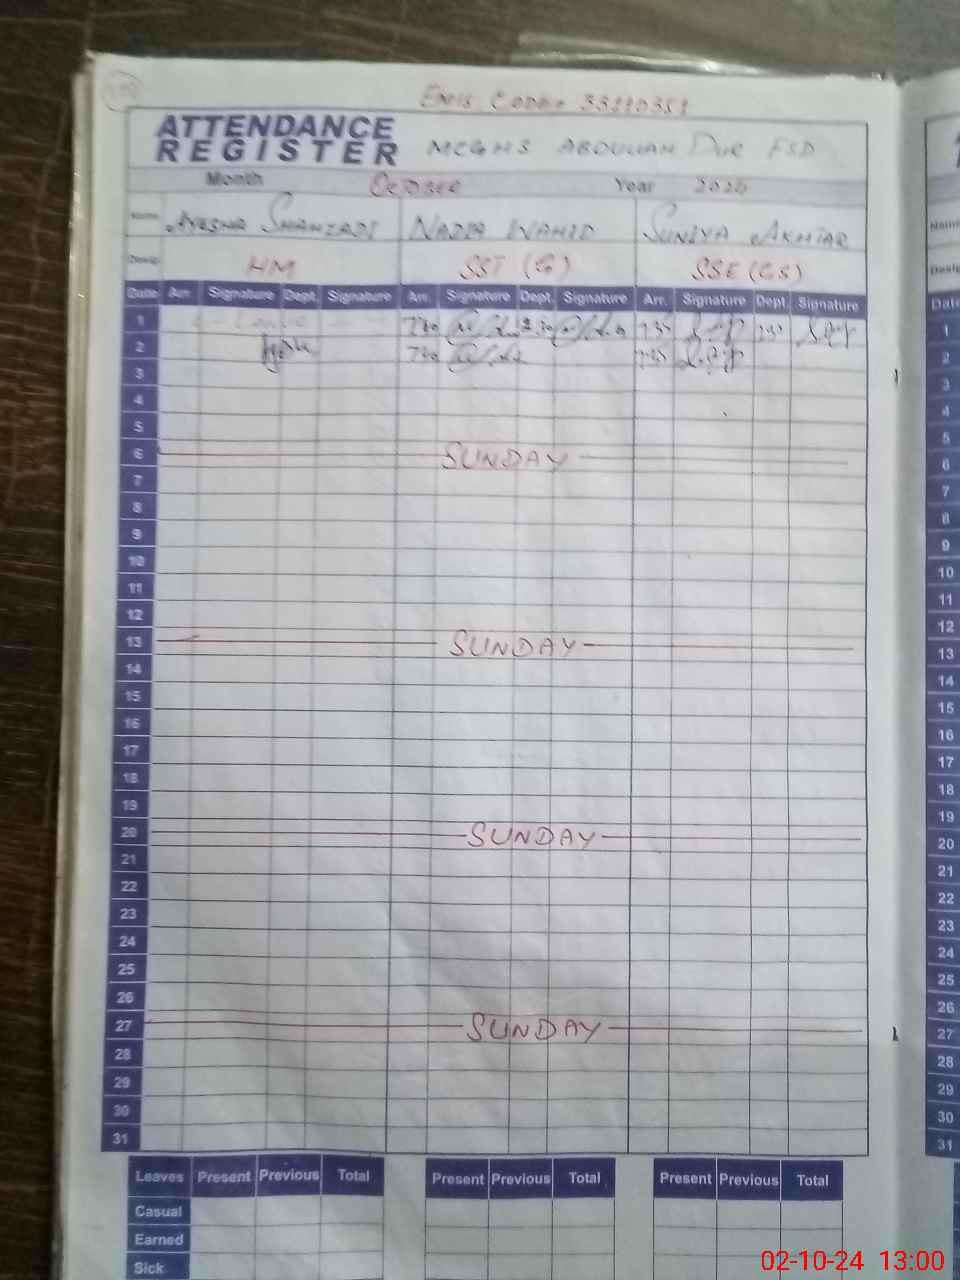 EMIS CODE# 33110351
ATTENDANCE REGISTER MCGHS ABDULLAH PUR FSD
Month OCTOBER Year 2024
Name AYESHA SHAHZADI NADIA WAHID SUNIYA AKHTAR
Desig HM SST (G) SSE (CS)
Date Arr. Signature Dept. Signature Arr. Signature Dept. Signature Arr. Signature Dept. Signature Date
1 Leave 730 2:30 735 230 1
2 730 735 2
3 3
4 4
5 5
6 SUNDAY 6
7 7
8 8
9 9
10 10
11 11
12 12
13 SUNDAY 13
14 14
15 15
16 16
17 17
18 18
19 19
20 SUNDAY 20
21 21
22 22
23 23
24 24
25 25
26 26
27 SUNDAY 27
28 28
29 29
30 30
31 31
Leaves Present Previous Total Present Previous Total Present Previous Total
Casual
Earned
Sick
02-10-24 13:00